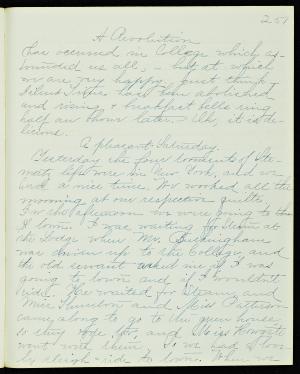 251
A Revolution
has occurred in College which as-
tounded us all, - but at which
we are very happy. Just think!
Silent Time has been abolished
and rising & breakfast bells ring
half an hour later. - Oh, it is de-
licious.
A pleasant Saturday.
Yesterday the four
left were in New York, and we
had a nice time. We worked all the
morning at our respective quilts.
In the afternoon we were going to
town. I was waiting for at
the Lodge when Mr. Buckingham
was driven up to the College, and
the old servant asked me if I was
going to town and if I wouldn't
ride. We waited for and
Miss and Miss Patterson
came along to go to the green house,
so they rode too, and Miss
went with them. So we had a love-
ly sleigh-ride to town. When we